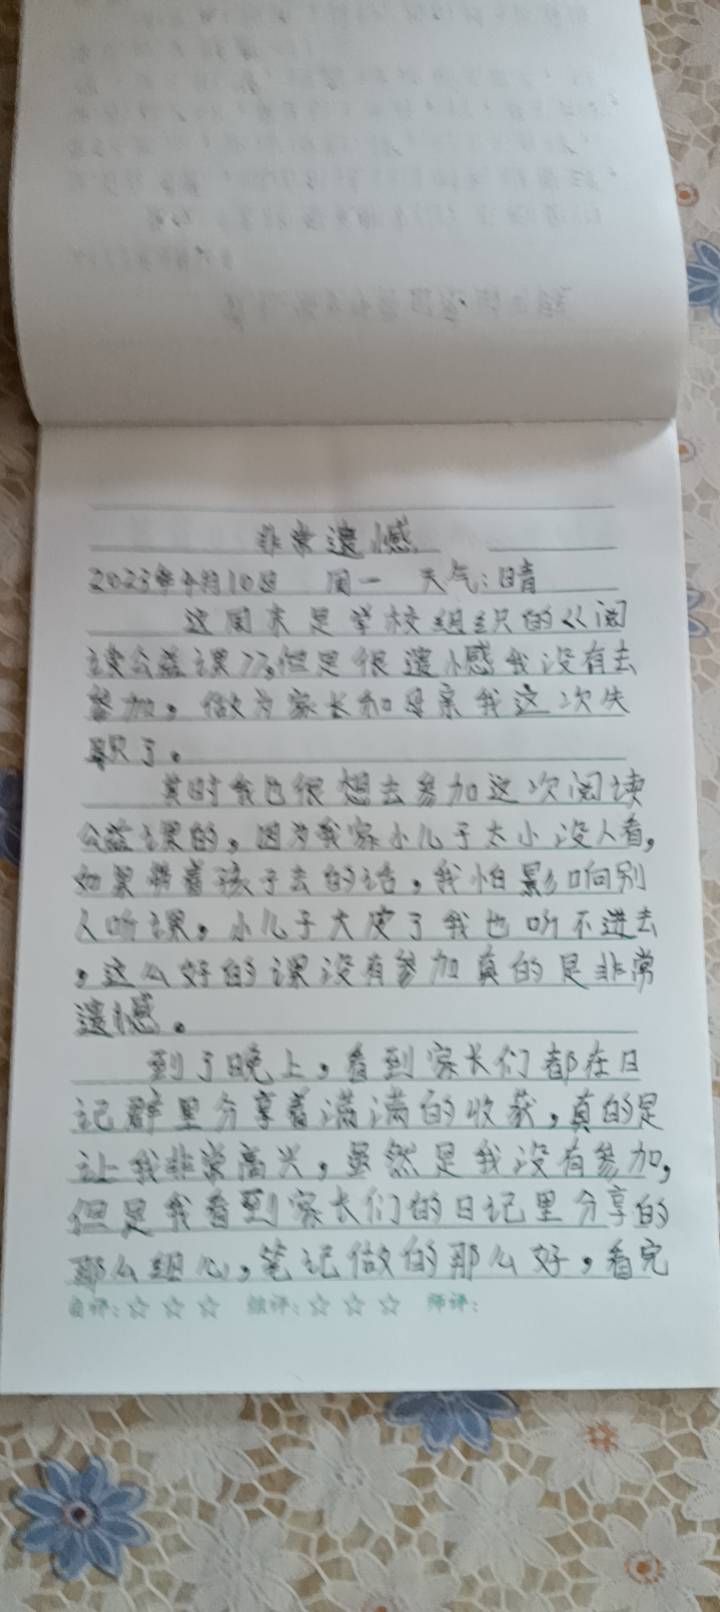 非常遗憾
2023年4月10日 周一 天气:晴
这周末是学校组织的《阅
读公益课》,但是很遗憾我没有去
参加。做为家长和母亲我这次失
职了。
其时我也很想去参加这次阅读
公益课的,因为我家小儿子太小没人看,
如果带着孩子去的话,我怕影响别
人听课。小儿子太皮了我也听不进去
,这么好的课没有参加真的是非常
遗憾。
到了晚上,看到家长们都在日
记群里分享着满满的收获,真的是
让我非常高兴,虽然是我没有参加,
但是我看到家长们的日记里分享的
那么细心,笔记做的那么好,看完
自评:☆ ☆ ☆ 组评:☆ ☆ ☆ 师评: